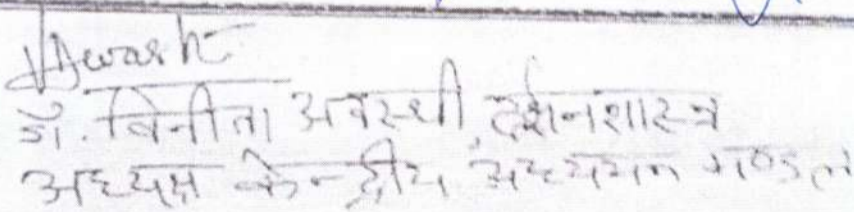 VAwasth
डॉ. विनीता अवस्थी, दर्शनशास्त्र
अध्यक्ष केन्द्रीय अध्ययन मण्डल